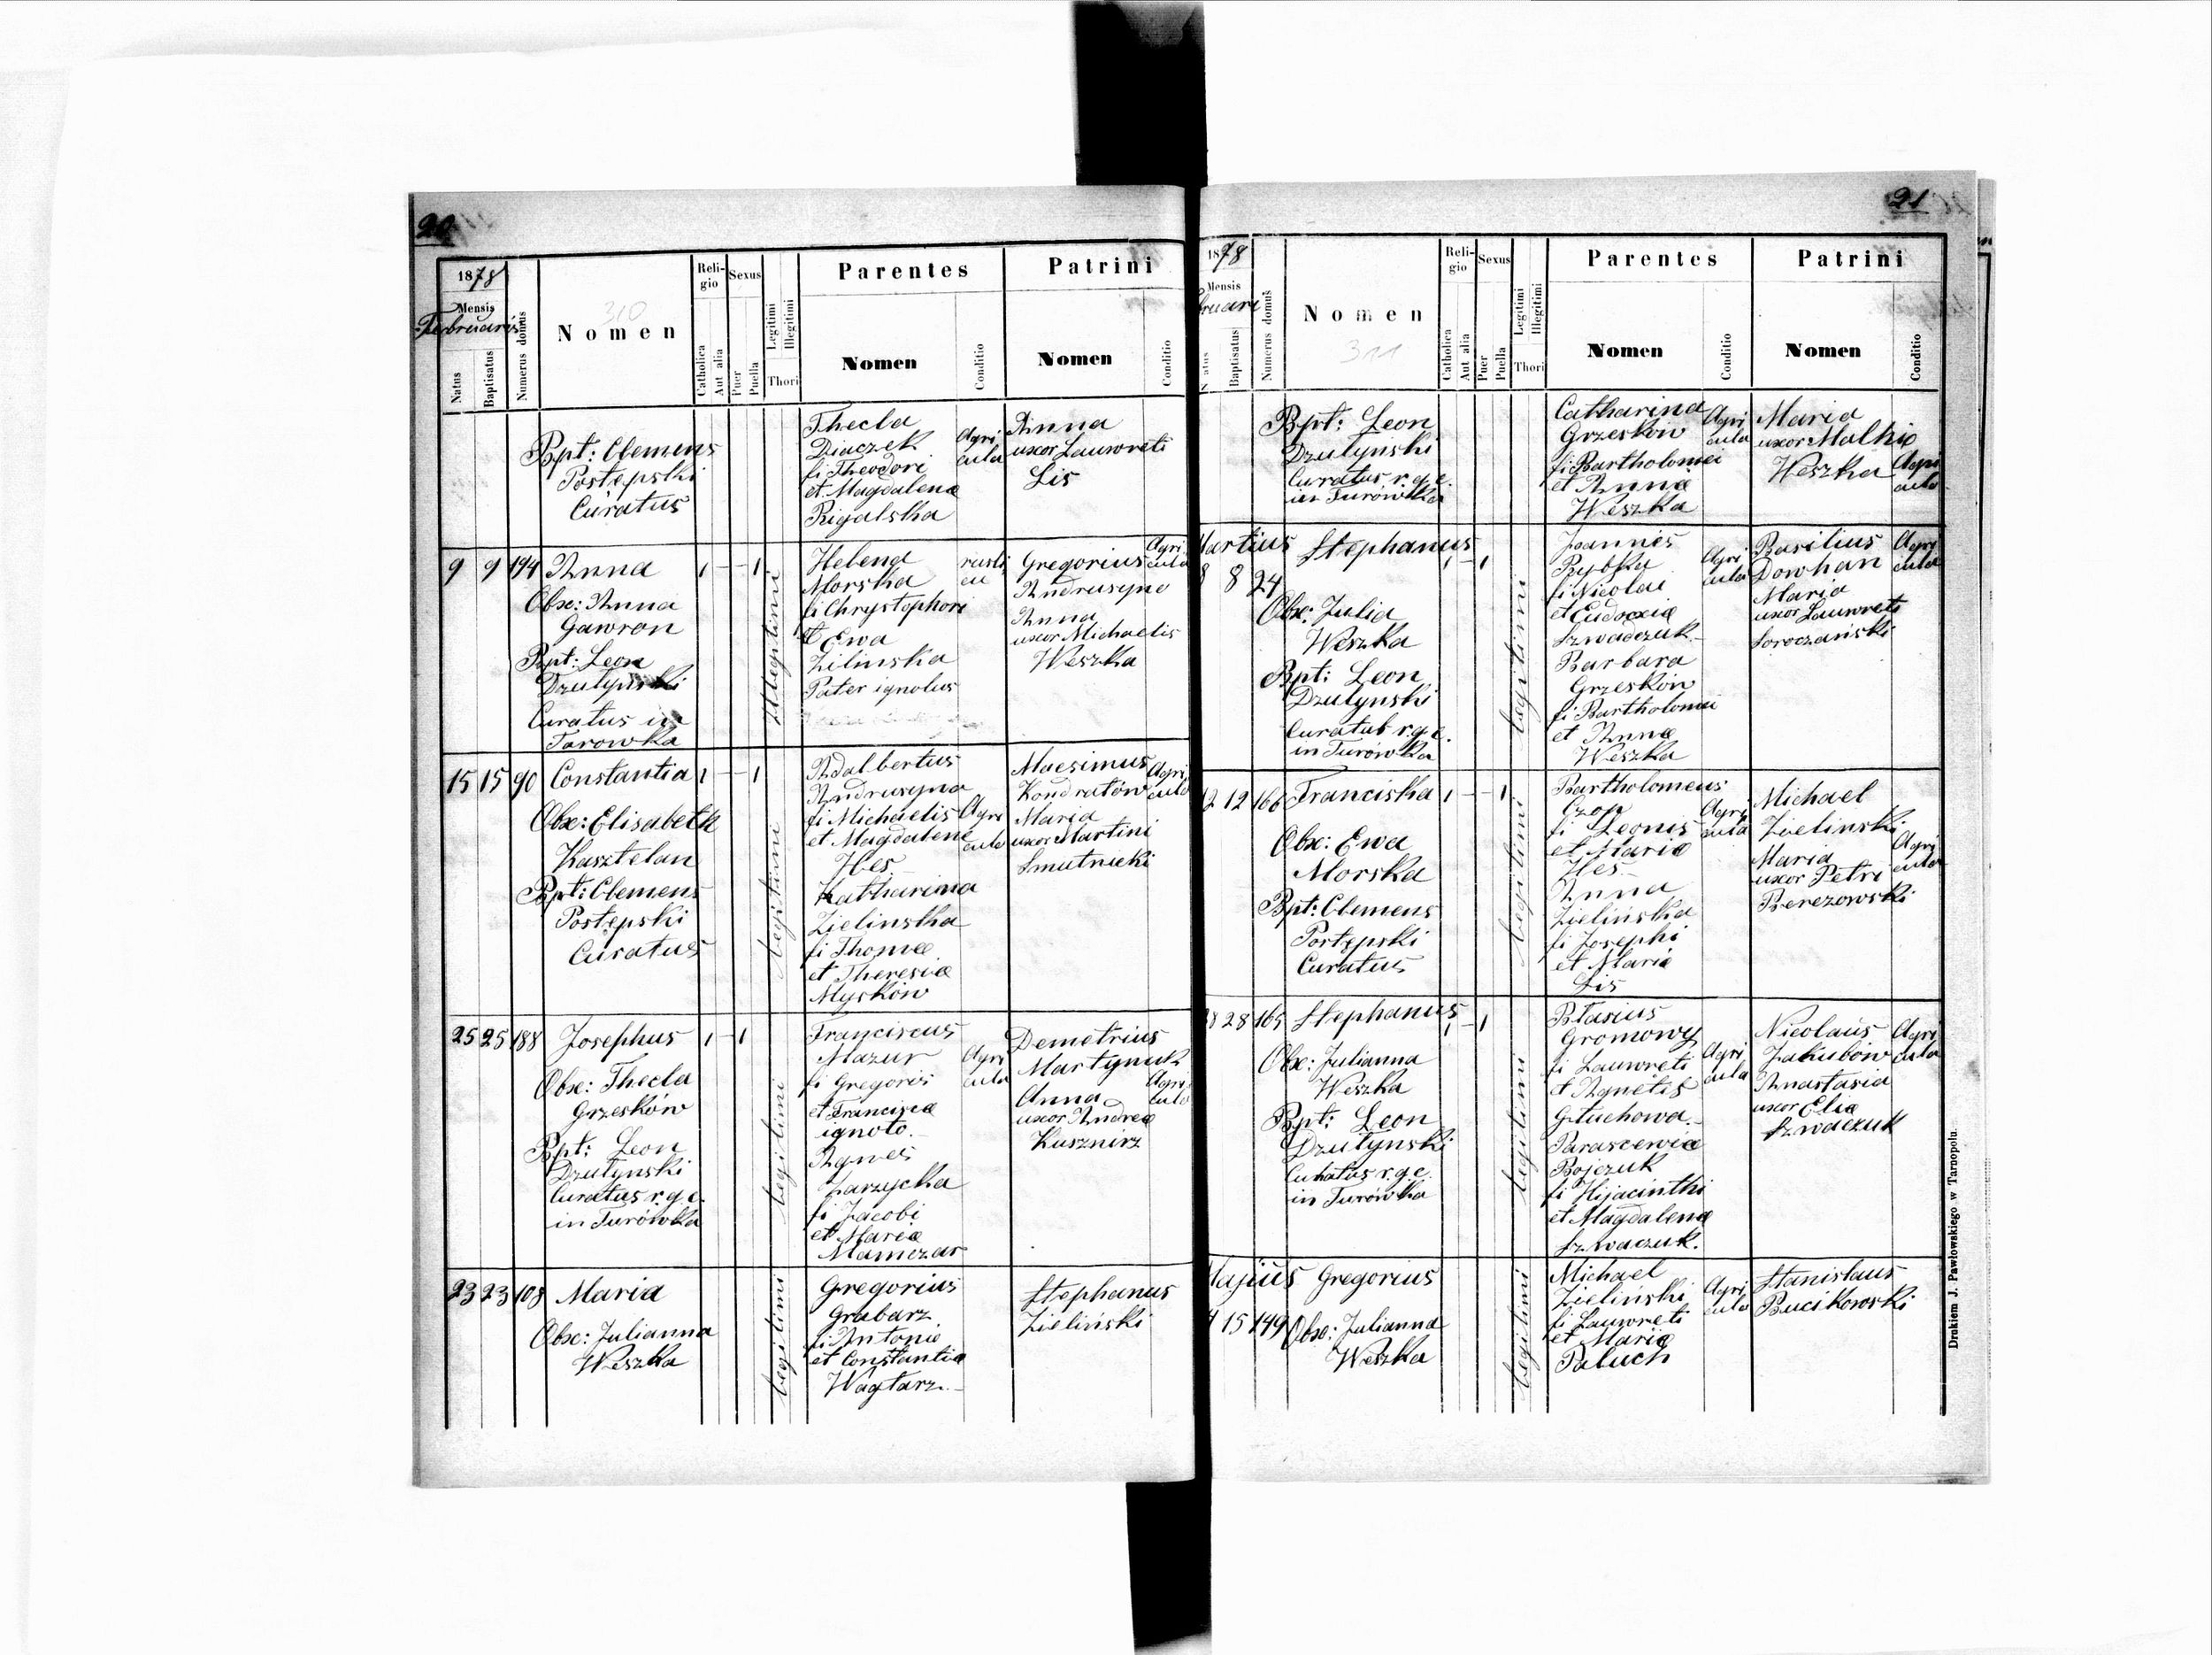 20
1878
Mensis
Februaris
Natus
Baptisatus
Numerus domus
310
Nomen
Reli-
gio
Catholica
Aut alia
Sexus
Puer
Puella
Legitimi
Illegitimi
Thori
Parentes
Nomen
Conditio
Patrini
Nomen
Conditio
Bpt: Clemens
Postępski
Curatus
Thecla
Diaczek
fi Theodori
et Magdalena
Rigalska
Agri
cula
Anna
uxor Lauwreti
Lis
9 9 194 Anna 1 - - 1
Obse: Anna
Gawron
Bpt: Leon
Dzulynski
Curatus in
Turowka
Illegitimi
Helena
Morska
fi Chrystophori
et Ewa
Zilinska
Pater ignotus
rusti
cu
Gregorius
Andrusyno
Anna
uxor Michaelis
Weszka
Agri
cula
15 15 90 Constantia 1 - - 1
Obse: Elisabeth
Kasztelan
Bpt: Clemens
Postępski
Curatus
Legitimi
Adalbertus
Andrusyna
fi Michaelis
et Magdalene
Hes
Katharina
Zielinska
fi Thomæ
et Theresiæ
Myskow
Agri
cula
Maesimus
Kondratów
Maria
uxor Martini
Smutnicki
Agri
cula
25 25 188 Josephus 1 - 1
Obse: Thecla
Grzesków
Bpt: Leon
Dzulynski
Curatus r.g.c.
in Turówka
Legitimi
Franciscus
Mazur
fi Gregoris
et Francisca
ignoto.
Agnes
Zarzycka
fi Jacobi
et Mariæ
Mamczar
Agri
cula
Demetrius
Martynuk
Anna
uxor Andreæ
Kusznirz
Agri
cula
23 23 108 Maria
Obse: Julianna
Weszka
Legitimi
Gregorius
Grabarz
fi Antonie
et Constantia
Wagtarz
Stephanus
Zieliński
21
1878
Mensis
bruari
Natus
Baptisatus
Numerus domus
Nomen
311
Reli-
gio
Catholica
Aut alia
Sexus
Puer
Puella
Legitimi
Illegitimi
Thori
Parentes
Nomen
Conditio
Patrini
Nomen
Conditio
Bpt: Leon
Dzulyński
Curatus r.g.c.
in Turówka
Catharina
Grzesków
fi Bartholomei
et Anna
Weszka
Agri
cula
Maria
uxor Mathio
Weszka
Agri
cula
Martius
8 8 24
Stephanus 1 - 1
Obse: Julia
Weszka
Bpt: Leon
Dzulynski
Curatus r.g.c.
in Turówka
Legitimi
Joannes
Rybka
fi Nicolai
et Eudoxiæ
Szwaczuk
Barbara
Grzesków
fi Bartholomei
et Anna
Weszka
Agri
cula
Basilius
Dowhan
Maria
uxor Lauwreti
Soroczański
Agri
cula
12 12 166 Franciska 1 - - 1
Obse: Ewa
Morska
Bpt: Clemens
Postępski
Curatus
Legitimi
Bartholomeus
Czop
fi Leonis
et Mariæ
Hes
Anna
Zielińska
fi Josephi
et Mariæ
Lis
Agri
cula
Michael
Zielinski
Maria
uxor Petri
Berezowski
Agri
cula
28 28 165 Stephanus 1 - 1
Obse: Julianna
Weszka
Bpt: Leon
Dzulynski
Curatus r.g.c.
in Turówka
Legitimi
Blasius
Gromowy
fi Lauwreti
et Agnetis
Głuchowa
Parascewia
Bojczuk
fi Hijacinthi
et Magdalena
Szwaczuk.
Agri
cula
Nicolaus
Jakubów
Anastasia
uxor Elia
Szwaczuk
Agri
cula
Majius
15 149
Gregorius
Obse: Julianna
Weszka
Legitimi
Michael
Zielinski
fi Lauwreti
et Mariæ
Paluch
Agri
cula
Stanislaus
Bucikowski
Drukiem J. Pawłowskiego w Tarnopolu.